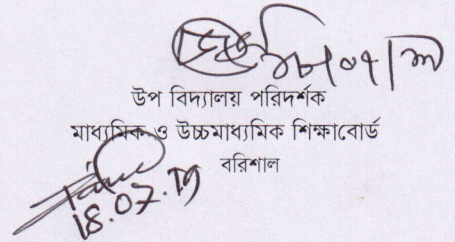 ১৮/০৭/১৯
উপ বিদ্যালয় পরিদর্শক
মাধ্যমিক ও উচ্চমাধ্যমিক শিক্ষাবোর্ড
বরিশাল
18.07.19